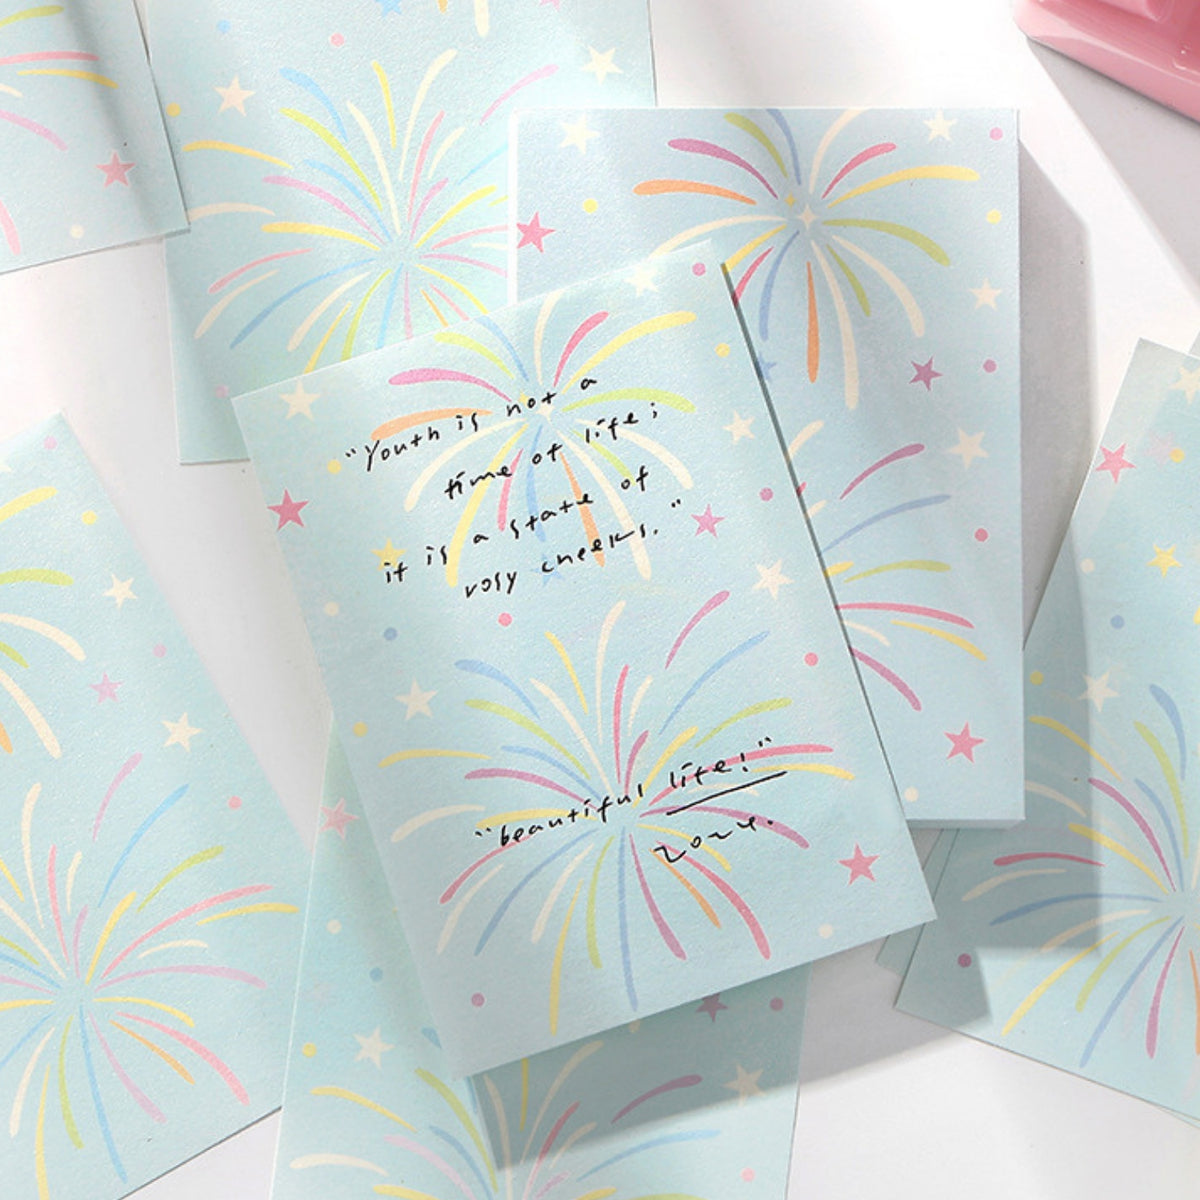 "Youth is not a
time of life;
it is a state of
rosy cheeks."
"beautiful life!"
2024.